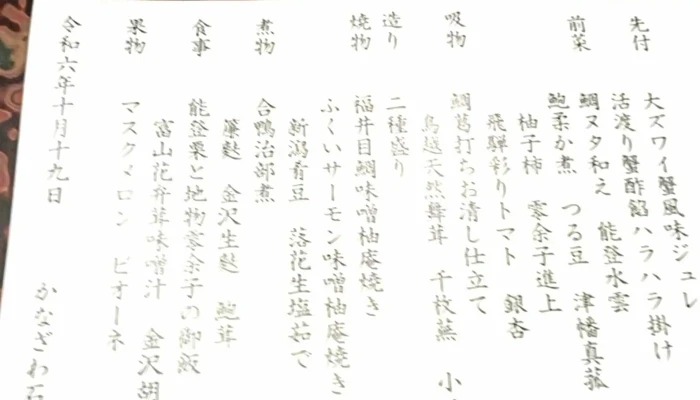 先付 大ズワイ蟹風味ジュレ
活渡り蟹酢餡ハラハラ掛け
前菜 鯛ヌタ和え 能登水雲 津幡真菰
鮑柔か煮 つる豆 零余子進上
柚子柿 飛騨彩りトマト 銀杏
吸物 鯛葛打ちお清し仕立て
鳥越天然舞茸 千枚蕪 小
造り 二種盛り
焼物 福井目鯛味噌柚庵焼き
ふくいサーモン味噌柚庵焼き
新潟肴豆 落花生塩茹で
煮物 合鴨治部煮
簾麩 金沢生麩 鮑茸
食事 能登栗と地物零余子の御飯
富山花弁茸味噌汁 金沢胡
果物 マスクメロン ピオーネ
令和六年十月十九日
かなざわ石